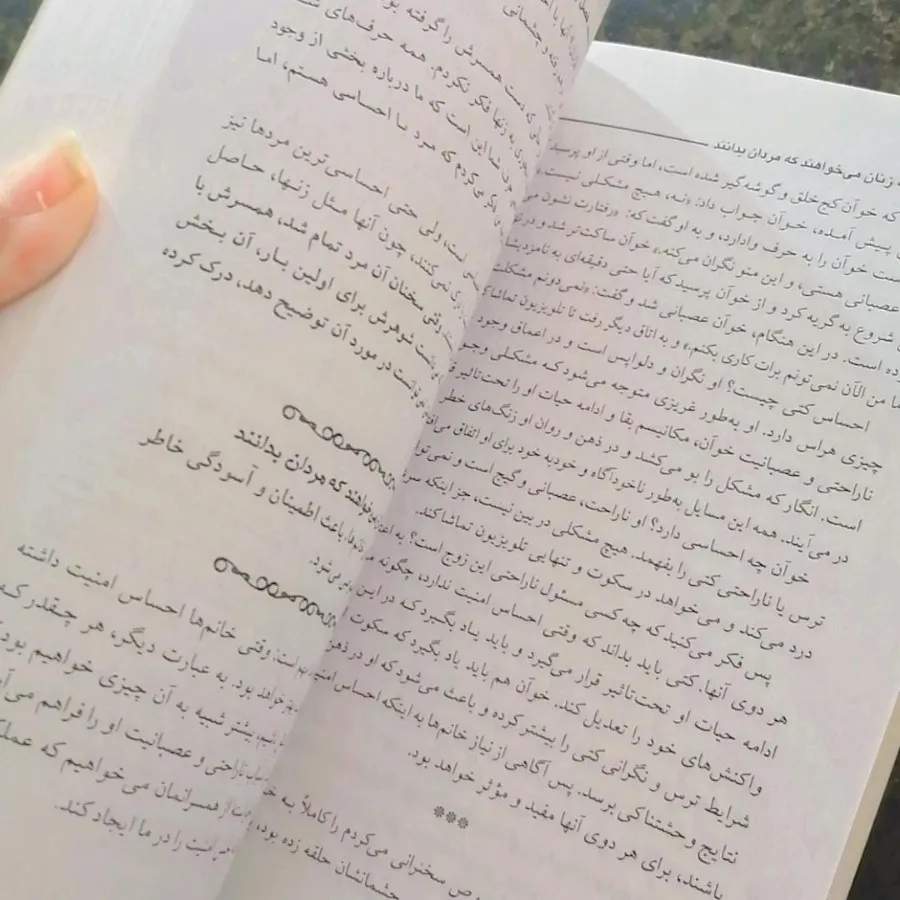 زنان می‌خواهند که مردان بدانند
که خوآن کج‌خلق و گوشه‌گیر شده است، اما وقتی از او پرسید
پیش آمده، خوآن جواب داد: «نه، هیچ مشکلی نیست
ست خوآن را به حرف وادارد، و به او گفت که: «رفتارت نشون
عصبانی هستی، و این منو نگران می‌کنه.» خوآن ساکت‌تر شد و در
شروع به گریه کرد و از خوآن پرسید که آیا حتی دقیقه‌ای به نامزد
است. در این هنگام، خوآن عصبانی شد و گفت: «نمی‌دونم مشکلت
من الآن نمی‌تونم برات کاری بکنم.» و به اتاق دیگر رفت تا تلویزیون تماشا
احساس کتی چیست؟ او نگران و دلواپس است و در اعماق وجود
چیزی هراس دارد. او به‌طور غریزی متوجه می‌شود که مشکلی
ناراحتی و عصبانیت خوآن، مکانیسم بقا و ادامه حیات او را تحت‌تاثیر
است. انگار که مشکل را بو می‌کشد و در ذهن و روان او زنگ‌های خطر
در می‌آیند. همه این مسایل به‌طور ناخودآگاه و خودبه خود برای او اتفاق
خوآن چه احساسی دارد؟ او ناراحت، عصبانی و گیج است و
ترس یا ناراحتی کتی را بفهمد. هیچ مشکلی در بین نیست، جز اینکه
درد می‌کند و می‌خواهد در سکوت و تنهایی تلویزیون تماشا کند.
پس فکر می‌کنید که چه کسی مسئول ناراحتی این زوج است؟
هر دوی آنها. کتی باید بداند که وقتی احساس امنیت ندارد، چگونه
ادامه حیات او تحت‌تاثیر قرار می‌گیرد و باید یاد بگیرد که در این
واکنش‌های خود را تعدیل کند. خوآن هم باید یاد بگیرد که سکوت
شرایط ترس و نگرانی کتی را بیشتر کرده و باعث می‌شود که او در ذهن
نتایج وحشتناکی برسد. پس آگاهی از نیاز خانم‌ها به اینکه احساس
باشند، برای هر دوی آنها مفید و مؤثر خواهد بود.
***
سخنرانی می‌کردم را کاملاً به
چشمانشان حلقه زده بود،
که دست همسرش را گرفته
به زنها فکر نکردم. همه حرف‌های
این است که ما درباره بخشی از وجود
می‌کردم که مرد با احساسی هستم، اما
است، ولی حتی احساسی‌ترین مردها نیز
نمی‌کنند، چون آنها مثل زنها، حاصل
وقتی سخنان آن مرد تمام شد، همسرش با
شوهرش برای اولین بار، آن بخش
در مورد آن توضیح دهد، درک کرده
که مردان بدانند
باعث اطمینان و آسودگی خاطر
می‌شود.
است: وقتی خانم‌ها احساس امنیت داشته
خواهد بود. به عبارت دیگر، هر چقدر که
بیشتر شبیه به آن چیزی خواهیم بود
ناراحتی و عصبانیت او را فراهم
از همسرانمان می خواهیم که
را در ما ایجاد کند.